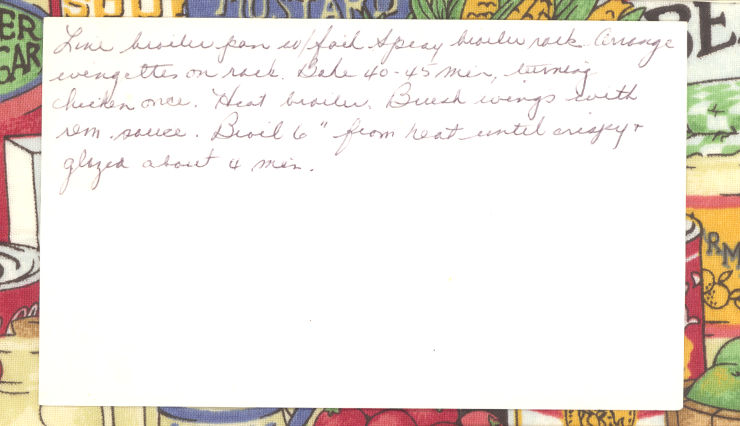 Line broiler pan w/foil Spray broiler rack. Arrange
wingettes on rack. Bake 40-45 min, turning
chicken once. Heat broiler. Brush wings with
rem. sauce. Broil 6" from heat until crispy +
glazed about 4 min.
MUSTARD
ER
GAR
BE
RM